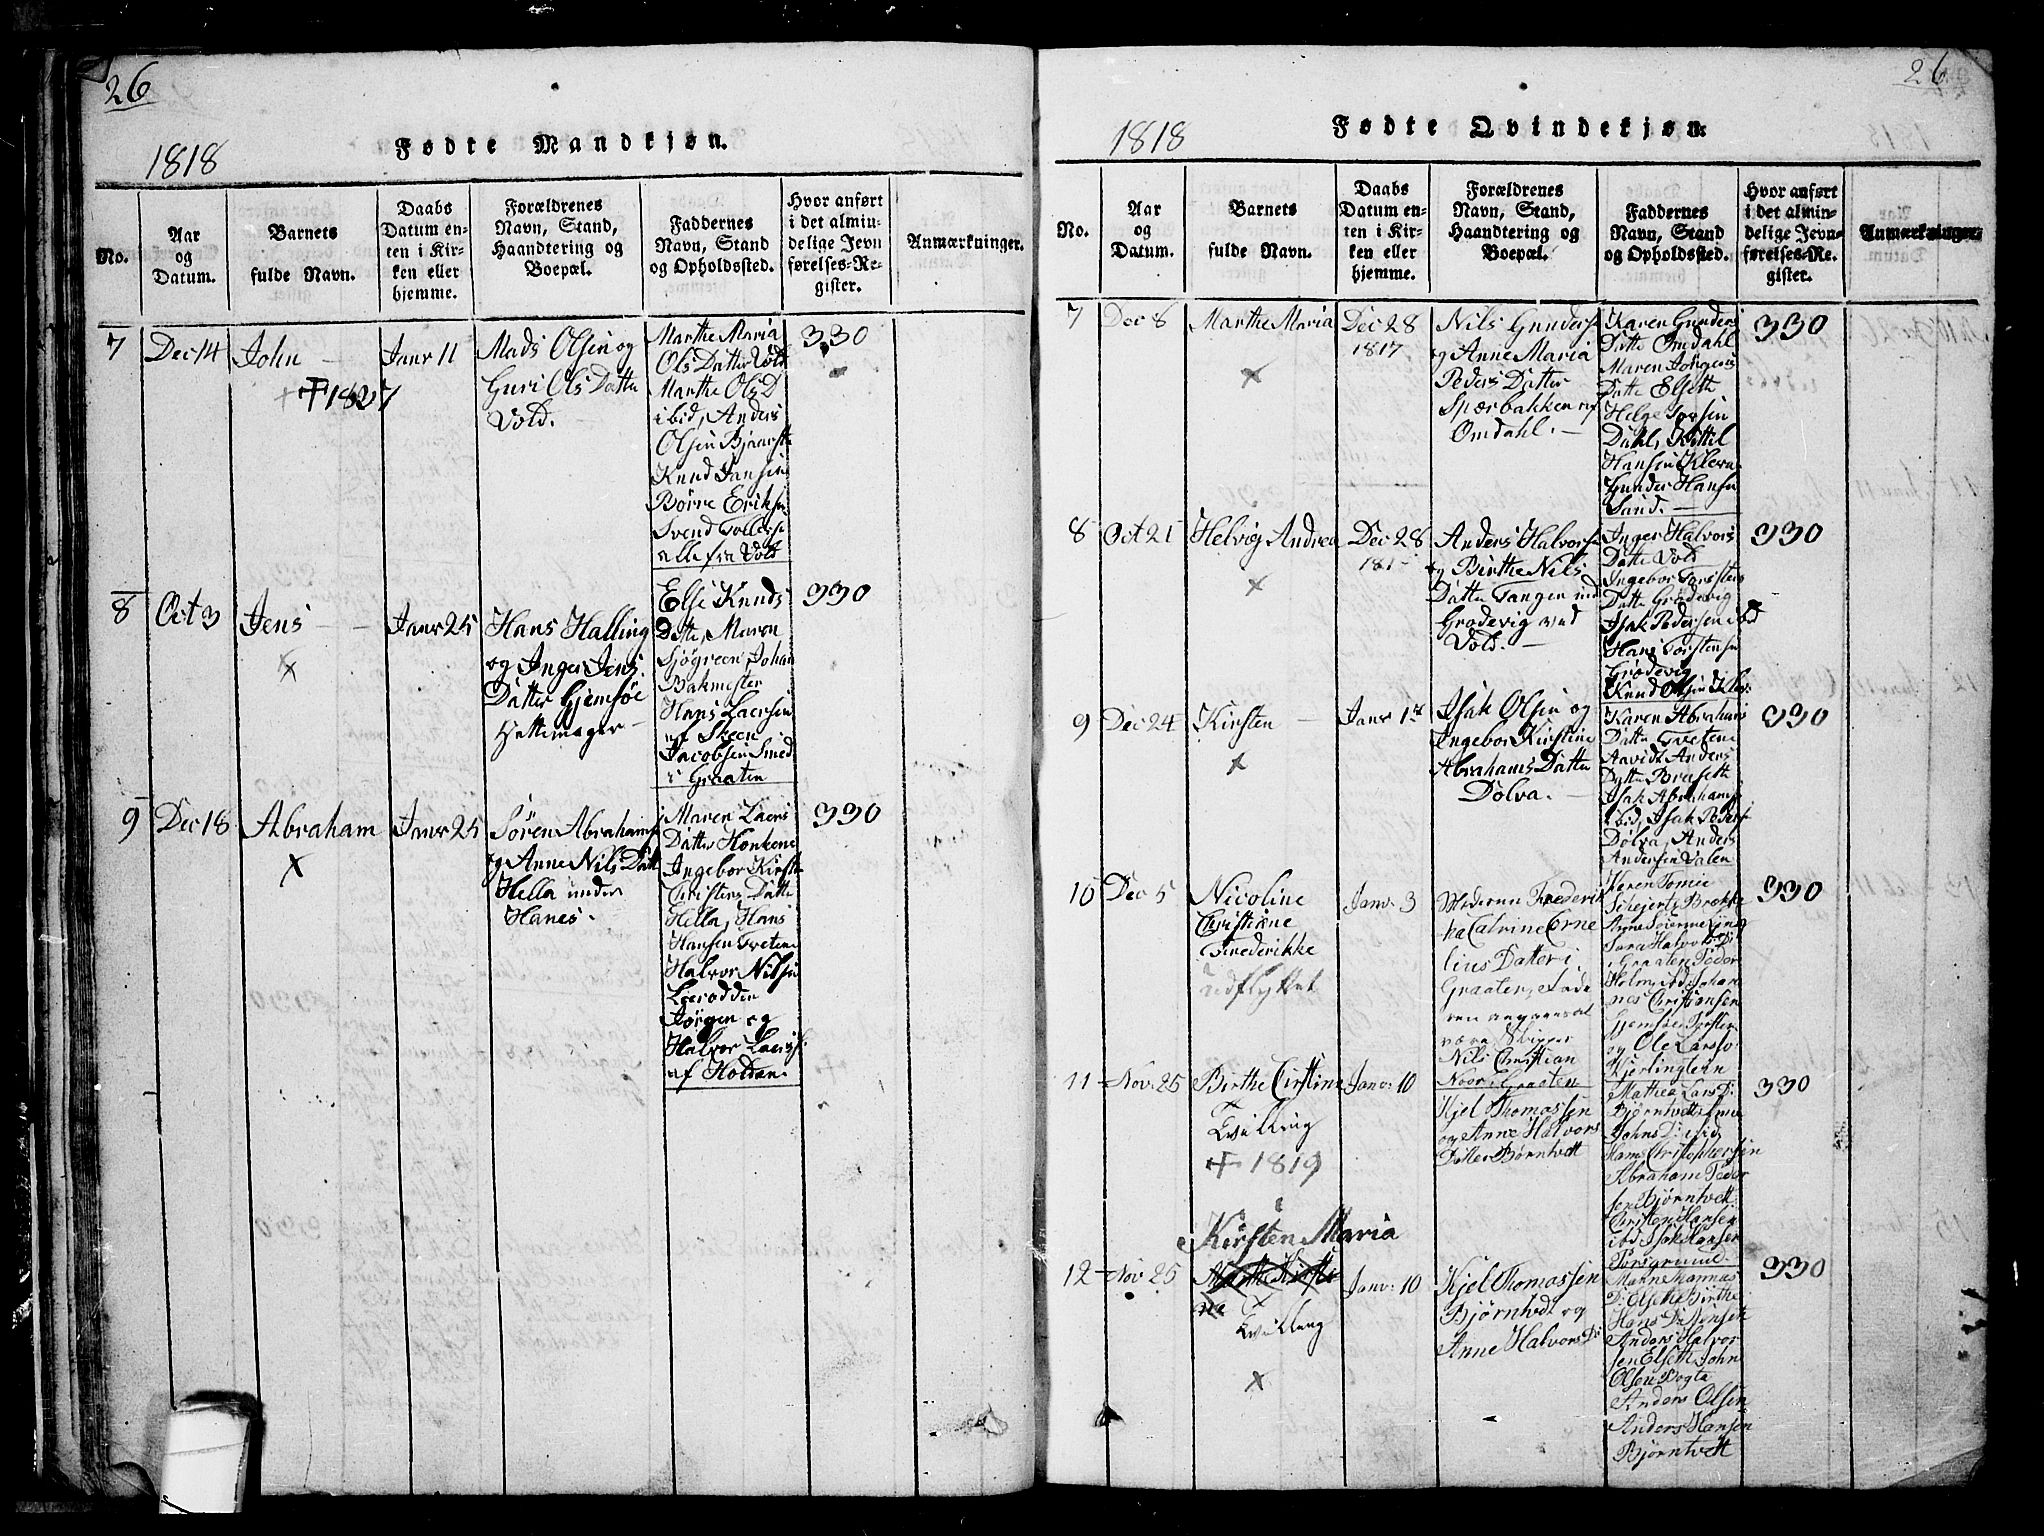 26
1818
Fødte Mandkjøn.
No.
Aar
og
Datum.
Barnets
fulde Navn.
Daabs
Datum en-
ten i Kir-
ken eller
hjemme.
Forældrenes
Navn, Stand,
Haandtering og
Boepæl.
Faddernes
Navn, Stand
og Opholdssted.
Hvor anført
i det almin-
delige Jevn
førelses-Re-
gister.
Anmærkninger.
7
Dec 14
John
+ 1827
Janr 11
Mads Olsen og
Guri Ols Datter
Vold.
Marthe Maria
Ols Datter Vold
Marthe Ols D
ibid, Anders
Olsen
Knud Jansen
Børre Eriksen
Svend
alle fra Vold
330
8
Oct 3
Jens
x
Janr 25
Hans Halling
og Inger Jens
Datter Gjemsøe
Hattemager
Else Knuds
Datte, Maren
Sjøgreen, Johan
Bakmester
Hans Laersen
af Skeen
Jacobsen Smed
i Graaten
330
9
Dec 18
Abraham
x
Janr 25
Søren Abrahams
og Anne Nils Datt
Hella under
Hanes.
Maren Laers
Datter Honkene
Ingebor Kirst
Christens Datte
Hella, Hans
Hansen Tvetene
Halvor Nilsen
Laerodden
Jørgen og
Halvor Laers
af Holdan.
330
26
1818
Fødte Qvindekjøn.
No.
Aar
og
Datum.
Barnets
fulde Navn.
Daabs
Datum en-
ten i Kir-
ken eller
hjemme.
Forældrenes
Navn, Stand,
Haandtering og
Boepæl.
Faddernes
Navn, Stand
og Opholdssted.
Hvor anført
i det almin-
delige Jevn-
førelses-Re-
gister.
Anmærkninger.
7
Dec 8
Marthe Maria
x
Dec 28
1817
Nils Gunders
og Anne Maria
Peders Datter
Spærbakken
Omdahl.
Karen Gunders
Datte Omdahl
Maren Jørgens
Datte Elseth
Helge
Dahl, Kittil
Hansen Kleva
Gunder Hansen
Sand.
330
8
Oct 21
Helvig Andrea
x
Dec 28
181
Anders Halvorsen
og Birthe Nils
Datter Tangen
Grødevig ved
Vold.
Inger Halvors
Datte Vold
Ingebor Torsten
Datte Grødevig
Isak Pedersen ibd
Hans Torstensen
Grødevig
Knud Olsen Klev
330
9
Dec 24
Kirsten
x
Janr 1
Isak Olsen og
Ingebor Kirstine
Abrahams Datter
Dolva.
Karen Abrahams
Datte Tvetene
Anders
Datte
Isak Abrahams
ibid, Isak Peders
Dolva, Anders
Andersen Valen
330
10
Dec 5
Nicoline
Christiane
Frederikke
udflyttet
Janv: 3
Frederik
ka Catrine Corne
lius Datter i
Graaten, Fade
ren angaves at
være Skipper
Nils Christian
Noor i Graaten
Karen Tomie
Sara Halvors D:
i Graaten Peder
Holm, ibd Johan
nes Christiansen
Gjemsøe
og Ole Larss
Kjerlingtein
330
11
Nov: 25
Birthe Cirstine
Tvilling
+ 1819
Janv: 10
Kjel Thomassen
og Anne Halvors
Datter Børntvett
Mathea Lars D:
Johns D: ibid
Hans Christophersen
Abraham Peder
sen Bjørntvett
Christen Hansen
ibd Isak Hansen
Porsgrund
330
12
Nov: 25
Kirsten Maria
Marthe Kirsti-
ne
Tvilling
x
Janv: 10
Kjel Thomassen
Bjørntvedt og
Anne Halvors D:
D: Elseth Birthe
Hans D:
Anders Halvor
sen Elseth John
Olsen
Anders Olsen
Anders Hansen
Bjørntvett
330